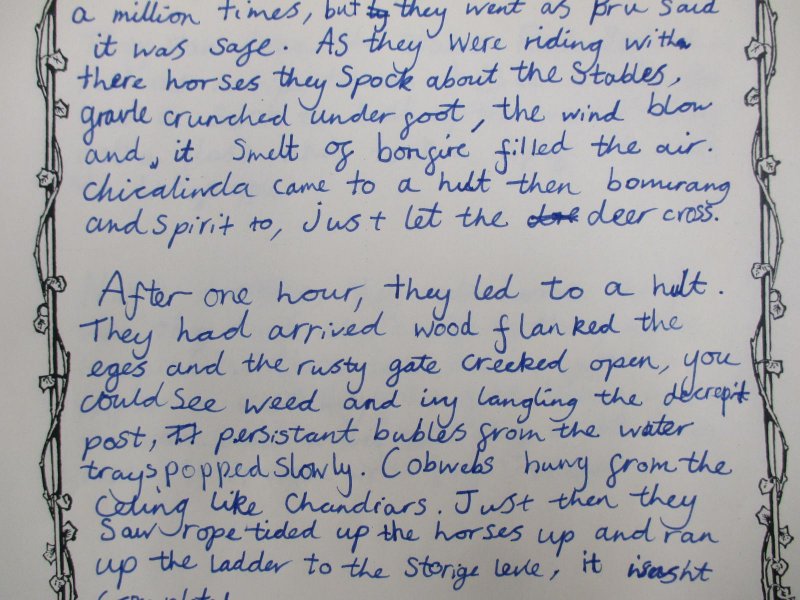 a million times, but they went as Bru said
it was safe. As they were riding with
there horses they Spock about the Stables,
gravle crunched under foot, the wind blow
and, it Smelt of bonfire filled the air.
Chicalinda came to a hult then bomurang
and Spirit to, just let the deer cross.
After one hour, they led to a hult.
They had arrived wood flanked the
eges and the rusty gate creeked open, you
could See weed and ivy langling the decrepit
post, persistant bubles from the water
trays popped Slowly. Cobwebs hung from the
celing like Chandiars. Just then they
Saw rope tided up the horses up and ran
up the ladder to the Storige levle, it